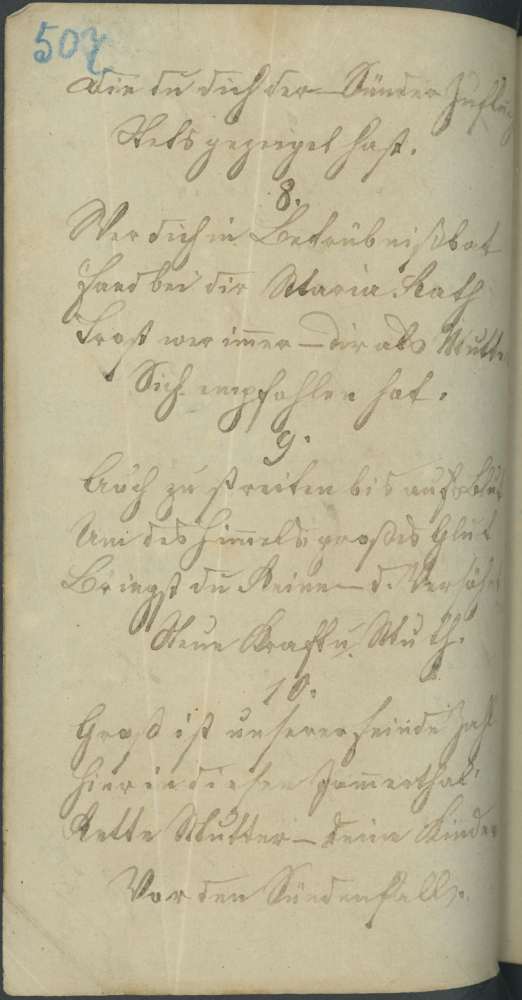 507
Die du dich der – Sünder Zuflucht
Stets gezeiget hast.
8.
Wer dich in Betrübniß bat
Fand bei dir Maria Rath
Trost wer immer – dir als Mutter
Sich empfohlen hat.
9.
Auch zu streiten bis aufs Blut
Um des Himmels großes Glut
Bringst du
Neue Kraft u. Muth.
10.
Groß ist unserer Feinde Zahl
Hier in diesen Jammerthal.
Rette Mutter – deine Kinder
Vor den Sündenfall.